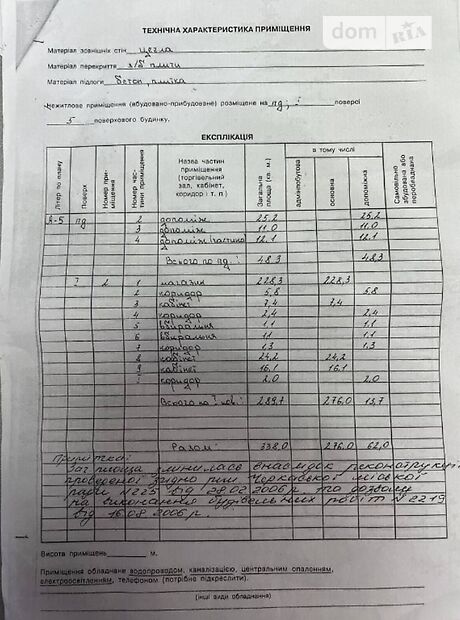 dom RIA
ТЕХНІЧНА ХАРАКТЕРИСТИКА ПРИМІЩЕННЯ
Матеріал зовнішніх стін цегла
Матеріал перекриття з/б плити
Матеріал підлоги бетон, плитка
Нежитлове приміщення (вбудовано-прибудоване) розміщене на пд; І поверсі
5 поверхового будинку.
ЕКСПЛІКАЦІЯ
Літер по плану Поверх Номер приміщення Номер частини приміщення Назва частин приміщення (торгівельний зал, кабінет, коридор і т. п.) Загальна площа (кв. м.) в тому числі адмінпобутова основна допоміжна Самовільно збудована або переобладнана
А-5 пд 2 допоміж 25,2 25,2
3 допоміж 11.0 11.0
4 допоміж (частина) 12,1 12,1
Всього по пд.: 48,3 48,3
2 1 магазин 228,3 228,3
2 коридор 5,8 5,8
3 кабінет 7,4 7,4
4 коридор 2,4 2,4
5 вбиральня 1,1 1,1
6 вбиральня 1,1 1,1
7 коридор 1,3 1,3
8 кабінет 24,2 24,2
9 кабінет 16,1 16,1
коридор 2,0 2,0
Всього по 1 пов.: 289,7 276,0 13,7
Разом: 338,0 276,0 62,0
Примітка:
Заг площа змінилась внаслідок реконструкції
проведеної згідно ріш Черкаської міської
ради №225 від 28.02 2006 р. та дозволу
на виконання будівельних робіт №2219
від 16.08 2006 р.
Висота приміщень м.
Приміщення обладнане водопроводом, каналізацією, центральним опаленням,
електроосвітленням, телефоном (потрібно підкреслити).
(інші види обладнання)